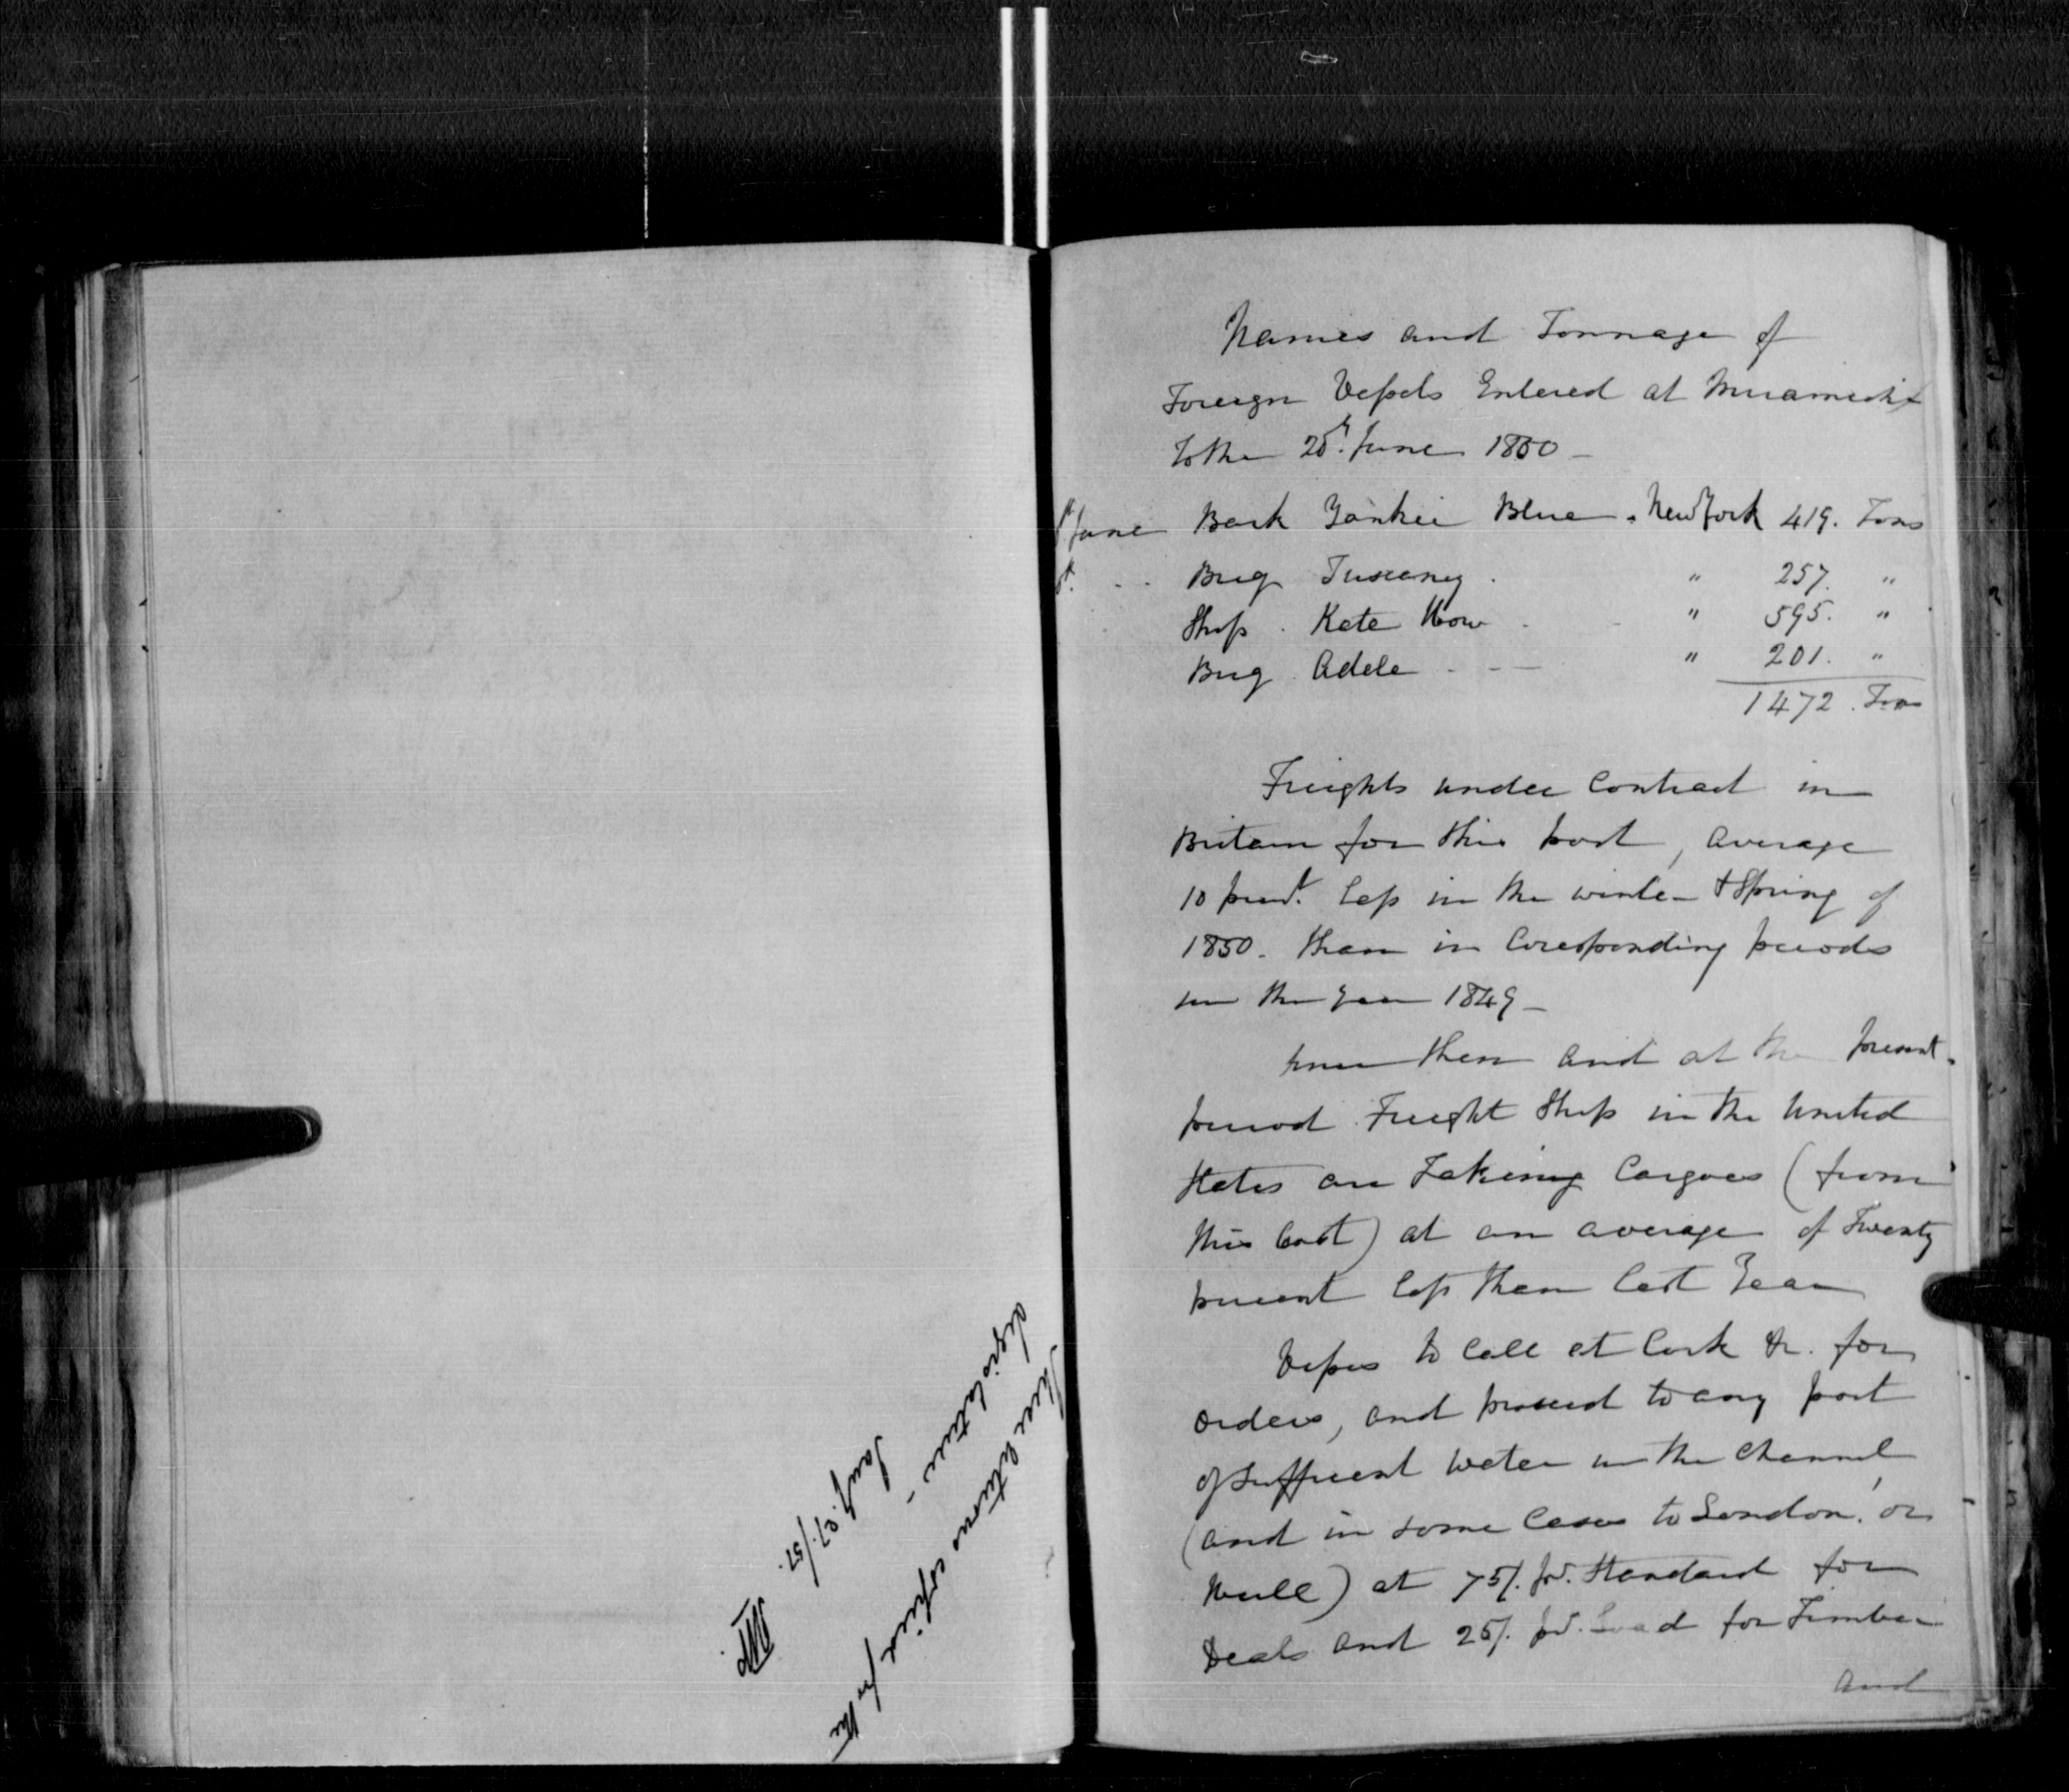 These returns copied for the
Legislature -
Jany 27./51.
Names and Tonnage of
Foreign Vessels Entered at Miramichi
to the 25th. June 1850 -
June Bark Yankee Blue . New York 419. Tons
Brig Tuscany . " 257. "
Ship . Kate How . " 595. "
Brig Adele - - - " 201. "
1472. Tons
Freights under Contract in
Britain for this port, average
10 pr cent. less in the winter & Spring of
1850. than in Corresponding periods
in the year 1849 -
then and at the present
period Freight Ships in the United
States are Taking Cargoes (from
this Coast) at an average of Twenty
percent less than last Year
Vessels to Call at Cork &c. for
orders, and proceed to any port
of sufficient water in the Channel
(and in some Cases to London, or
Hull) at 75/. pr. Standard for
Deals and 25/. pr. Load for Timber
and